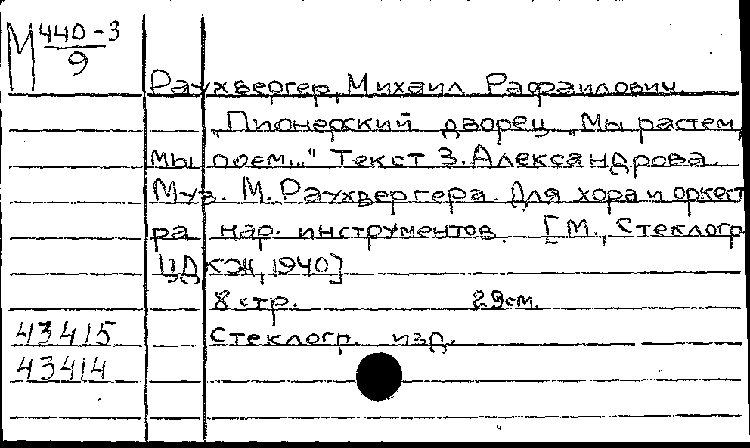 М 440-3
9
Раухвергер, Михаил Рафаилович.
"Пионерский дворец "Мы растем,
мы поем..." Текст З. Александрова.
Муз. М. Раухвергера. Для хора и оркест
ра нар. инструментов. [М., Стеклогр.
ЦДКЖ, 1940]
8 стр. 29 см.
43415 Стеклогр. изд.
43414